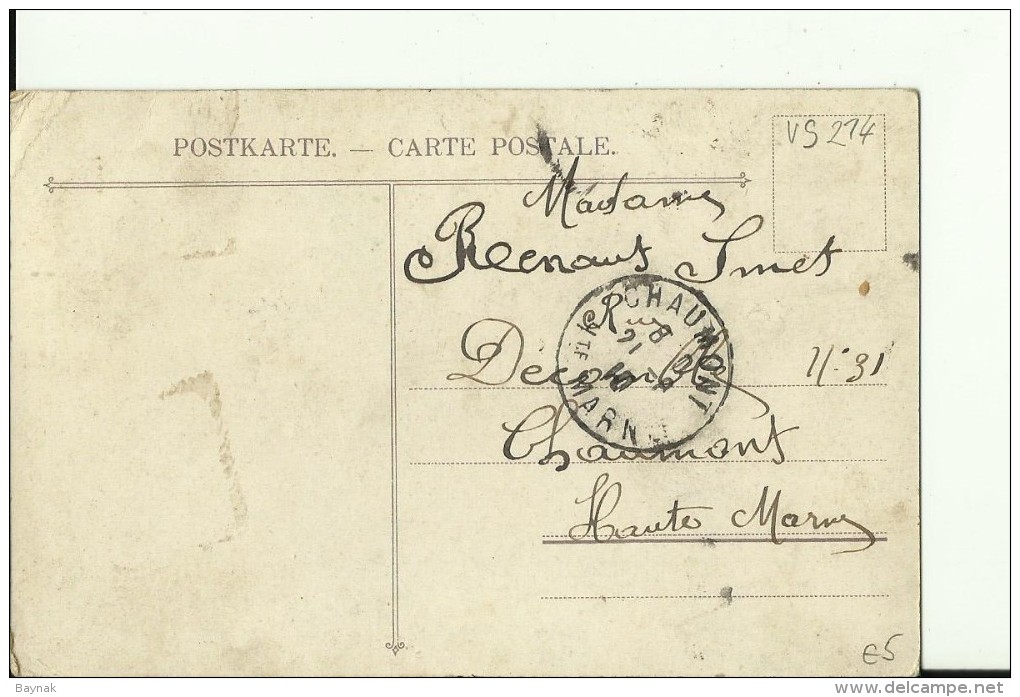 VS 214
POSTKARTE. — CARTE POSTALE.
Madame
Renaut Smet
Rue
N° 31
Chaumont
Haute Marne
CHAUMONT
HTE MARNE
€5
Baynak
www.delcampe.net